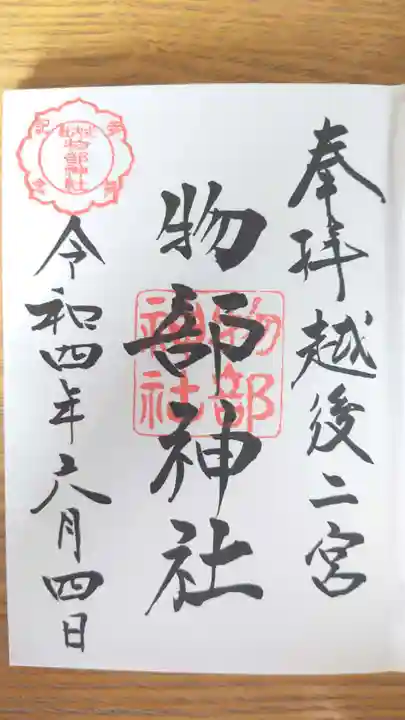 奉拝越後二宮
物部神社
物部神社
令和四年六月四日
物部神社